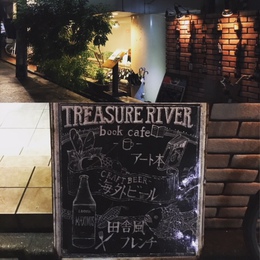 TREASURE RIVER
book cafe
アート本
CRAFT BEER
クラフトビール
田舎風
フレンチ